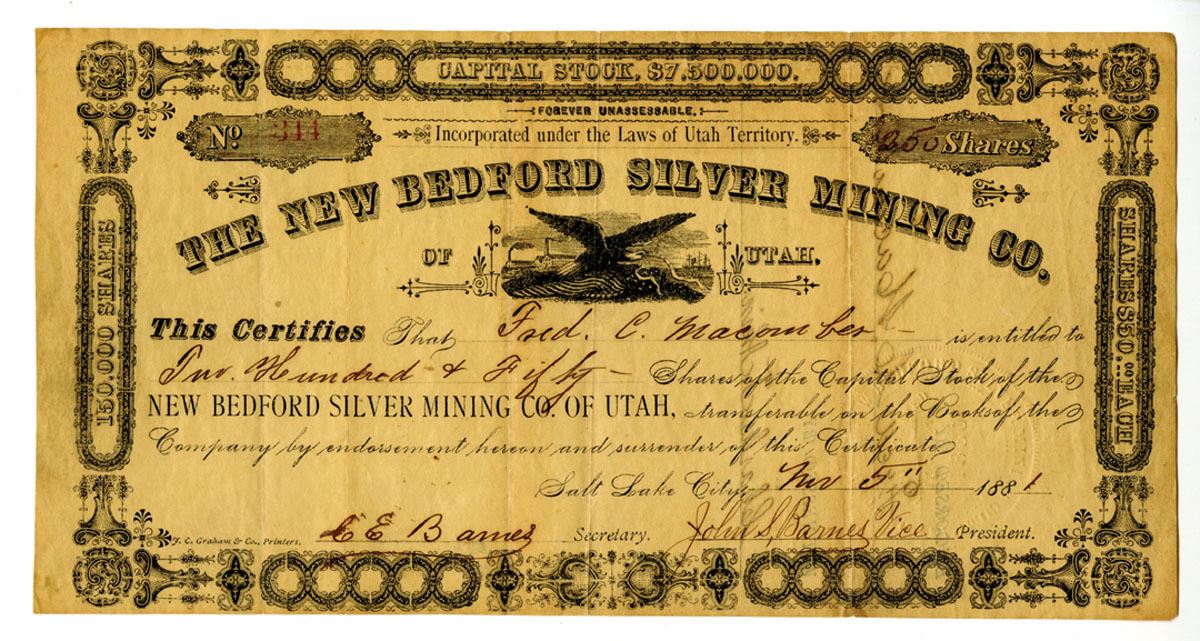 CAPITAL STOCK, $7,500,000.
FOREVER UNASSESSABLE.
No. 344
Incorporated under the Laws of Utah Territory.
250 Shares
THE NEW BEDFORD SILVER MINING CO.
OF UTAH.
150.000 SHARES
SHARES $50.00 EACH
This Certifies That Fred. C. Macomber is entitled to
Two Hundred & Fifty Shares of the Capital Stock of the
NEW BEDFORD SILVER MINING CO. OF UTAH, transferable on the Books of the
Company by endorsement hereon and surrender of this Certificate
Salt Lake City, Nov 5" 1881
F. C. Graham & Co., Printers.
C E Barnes Secretary. John S, Barnes Vice President.